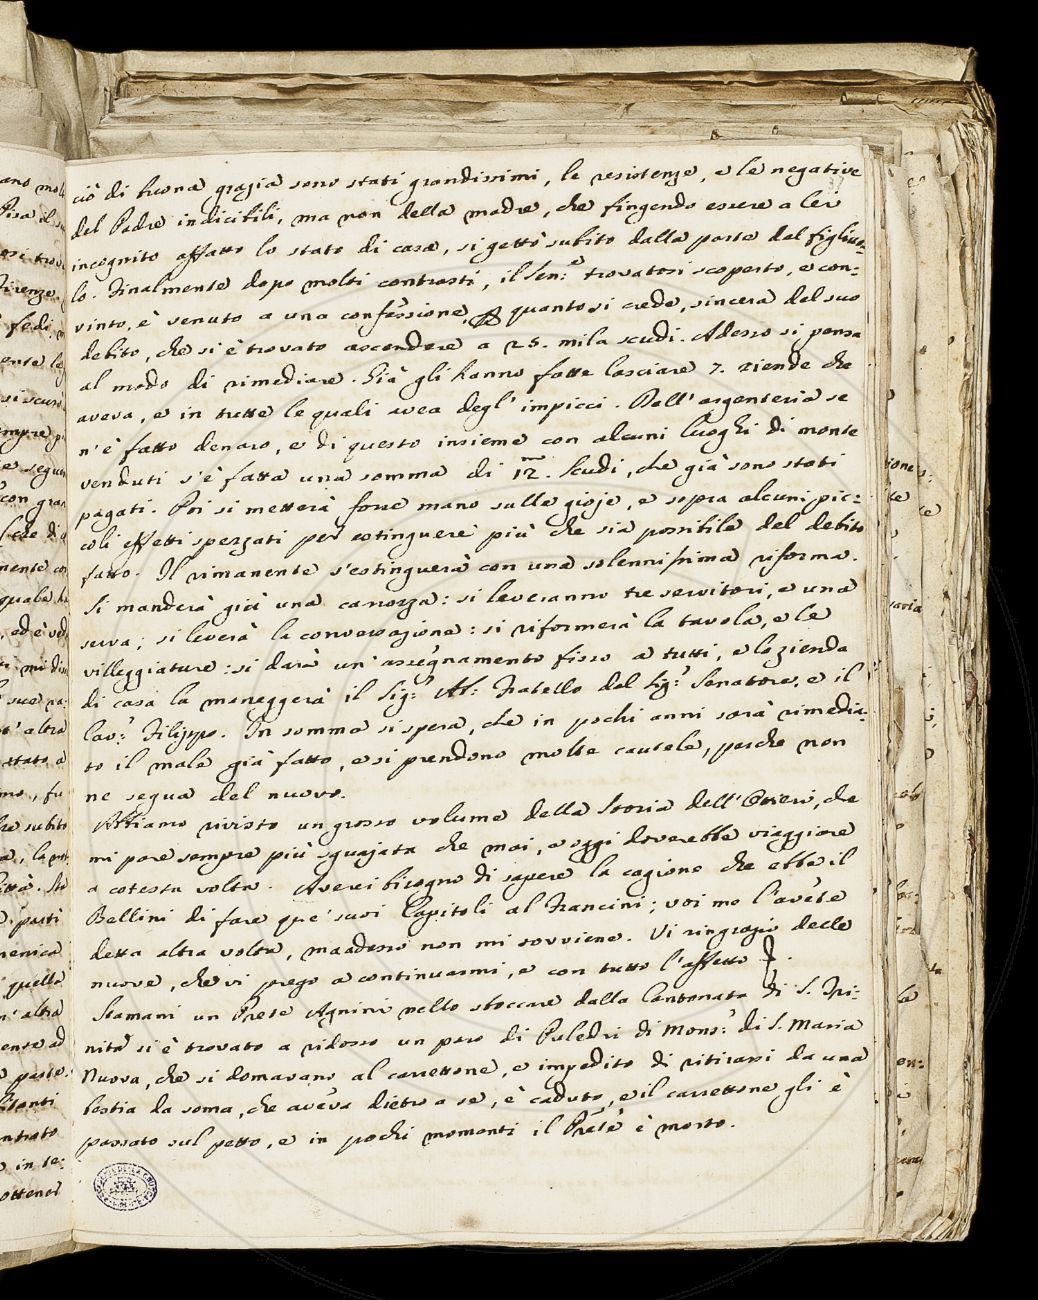 ciò di buona grazia sono stati grandissimi, le resistenze, e le negative
del Padre indicibili, ma non della madre, che fingendo essere a lei
incognito affatto lo stato di casa, si gettò subito dalla parte del figliuo-
lo. Finalmente dopo molti contrasti, il Sen.e trovatosi scoperto, e con-
vinto, è venuto a una confessione, quanto si crede, sincera del suo
debito, che si è trovato ascendere a 25. mila scudi. Adesso si pensa
al modo di rimediare. Già gli hanno fatte lasciare 7. ziende che
aveva, e in tutte le quali avea degl' impicci. Dell' argenteria se
n'è fatto denaro, e di questo insieme con alcuni luoghi di monte
venduti s'è fatta una somma di 12.m Scudi, che già sono stati
pagati. Poi si metterà forse mano sulle gioje, e sopra alcuni pic-
coli effetti spezzati per estinguere più che sia possibile del debito
fatto. Il rimanente s'estinguerà con una solennissima riforma.
Si manderà giù una carrozza: si leveranno tre servitori, e una
serva; si leverà la conversazione: si riformerà la tavola, e le
villeggiature: si darà un' assegnamento fisso a tutti, e l'azienda
di casa la maneggerà il Sig.r Ab: Fratello del Sig.r Senatore, e il
Cav.r Filippo. In somma si spera, che in pochi anni sarà rimedia-
to il male già fatto, e si prendono molte cautele, perché non
ne segua del nuovo.
Abbiamo rivisto un grosso volume della Storia dell' Ottieri, che
mi pare sempre più sguajata che mai, e oggi doverebbe viaggiare
a cotesta volta. Averei bisogno di sapere la cagione che ebbe il
Bellini di fare que' suoi Capitoli al Francini; voi me l'avete
detta altra volta, ma adesso non mi sovviene. Vi ringrazio delle
nuove, che vi prego a continuarmi, e con tutto l'affetto
Stamani un Prete Agnini nello stoccare dalla Cantonata di S. Tri-
nità si è trovato a ridosso un paro di Puledri di Mons.r di S. Maria
Nuova, che si domavano al carrettone, e impedito di ritirarsi da una
bestia da soma, che aveva dietro a sé, è caduto, e il carrettone gli è
passato sul petto, e in pochi momenti il Prete è morto.